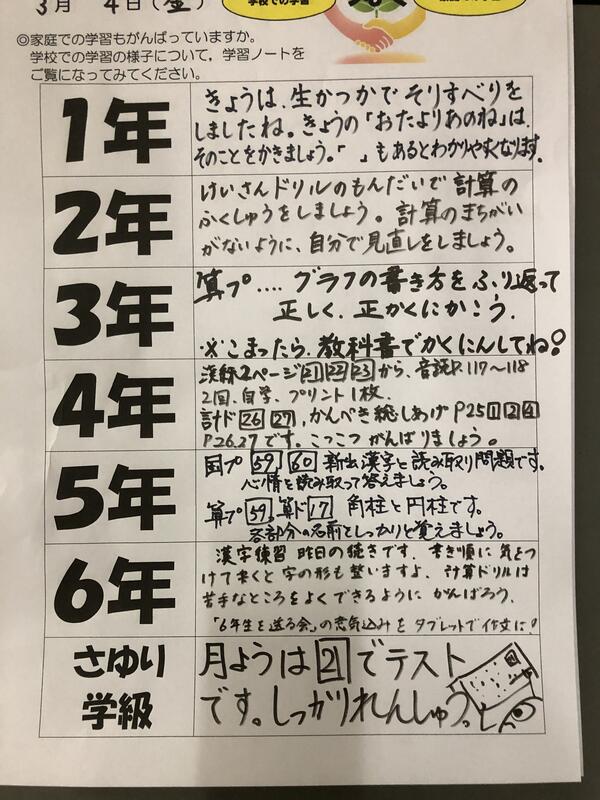 3月 4日(金)
学校での学習
◎家庭での学習もがんばっていますか。
学校での学習の様子について，学習ノートを
ご覧になってみてください。
1年
きょうは、生かつかで そりすべりを
しましたね。きょうの「おたよりあのね」は、
そのことをかきましょう。「 」もあるとわかりやすくなります。
2年
けいさんドリルのもんだいで 計算の
ふくしゅうをしましょう。計算のまちがい
がないように、自分で見直しをしましょう。
3年
算プ‥‥ グラフの書き方をふり返って
正しく、正かくにかこう。
※こまったら、教科書でかくにんしてね!
4年
漢練2ページ 21 22 23 から、音読P.117〜118
2回、自学、プリント1枚、
計ド 26 27、かんぺき総しあげ P25 1 2 4
P.26.27です。こつこつ がんばりましょう。
5年
国プ 59、60 新出漢字と読み取り問題です。
心情を読み取って答えましょう。
算プ 59、算ド 17 角柱と円柱です。
各部分の名前をしっかりと覚えましょう。
6年
漢字練習 昨日の続きです．書き順に気をつ
けて書くと字の形も整いますよ．計算ドリルは
苦手なところをよくできるように がんばろう．
「6年生を送る会」の意気込みを タブレットで作文に!
さゆり
学級
月ようは 21 でテスト
です。しっかりれんしゅう。